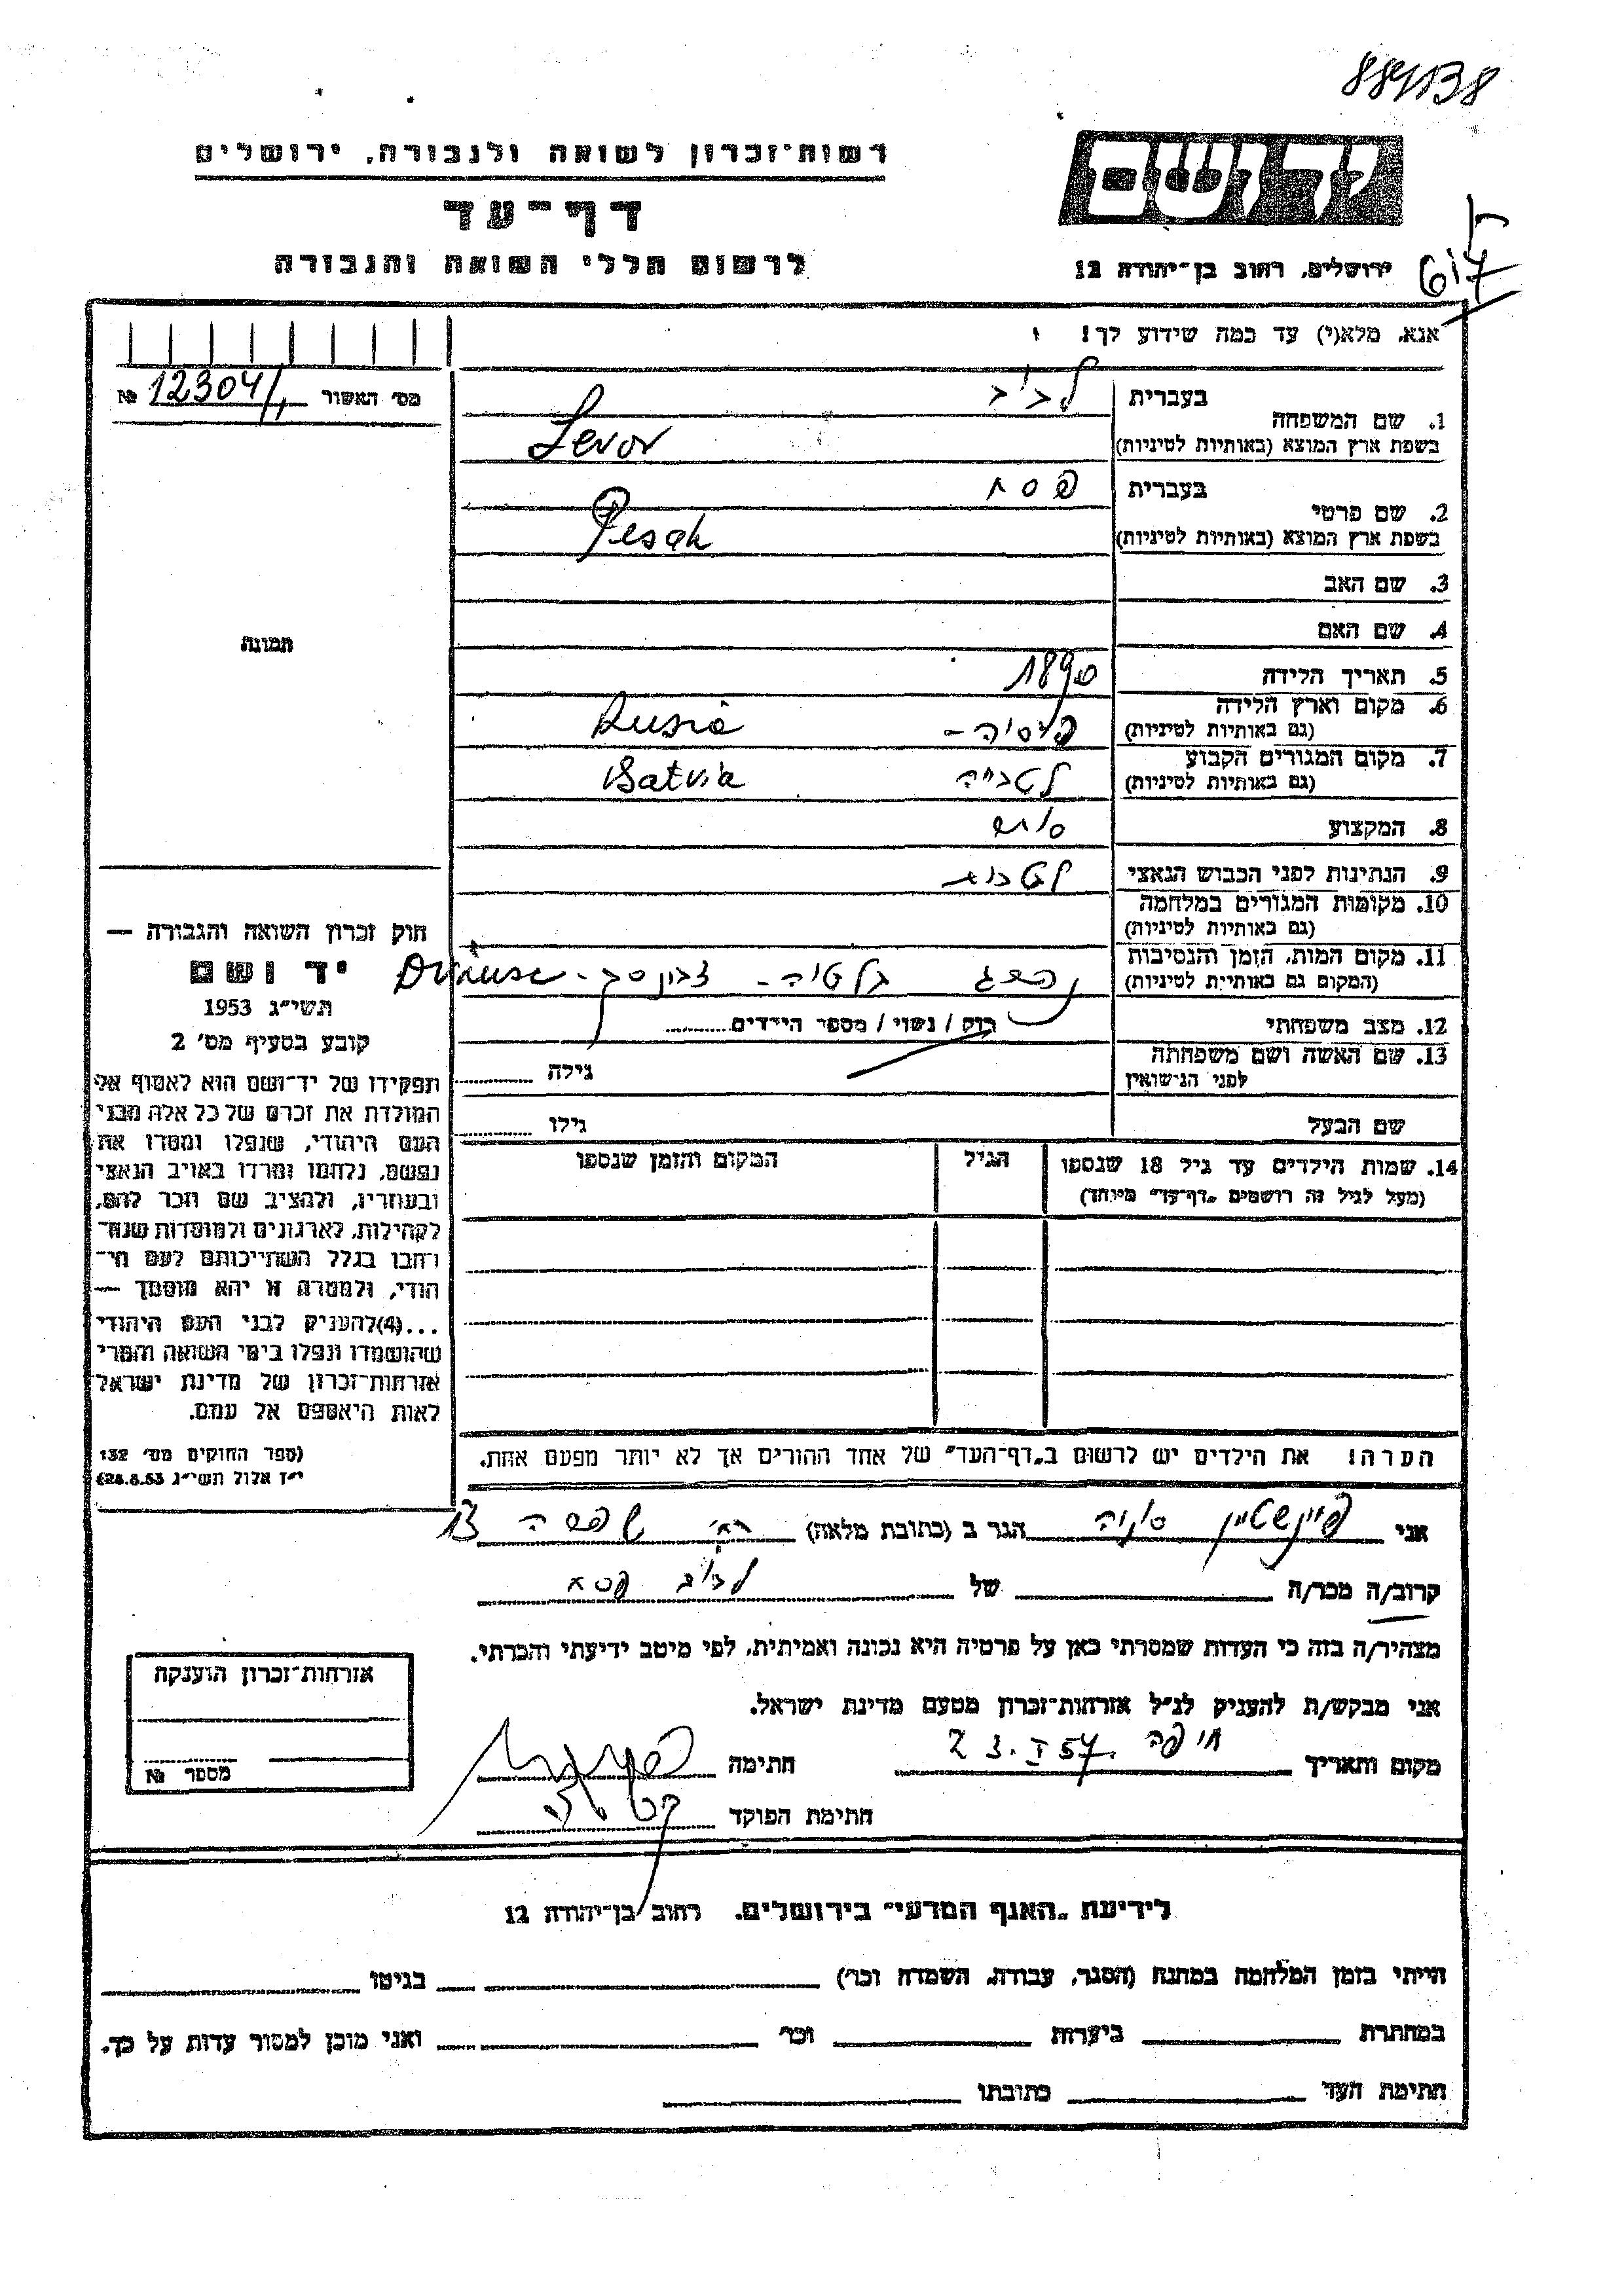 רשות־זכרון לשואה ולגבורה, ירושלים
דף־עד
לרשום חללי השואה והגבורה
יד ושם
ירושלים, רחוב בן־יהודה 12
617
אנא, מלא(י) עד כמה שידוע לך!
מס׳ האשור 12304/1 №
1. שם המשפחה
בעברית
בשפת ארץ המוצא (באותיות לטיניות) Levor
2. שם פרטי
בעברית פסח
בשפת ארץ המוצא (באותיות לטיניות) Pesah
3. שם האב
4. שם האם
תמונה
5. תאריך הלידה 1890
6. מקום וארץ הלידה
(גם באותיות לטיניות) רוסיה – Rusia
7. מקום המגורים הקבוע
(גם באותיות לטיניות) לטביה Latvia
8. המקצוע סוחר
9. הנתינות לפני הכבוש הנאצי
10. מקומות המגורים במלחמה
(גם באותיות לטיניות)
11. מקום המות, הזמן והנסיבות
(המקום גם באותיות לטיניות) נהרג
12. מצב משפחתי רוק / נשוי / מספר הילדים
13. שם האשה ושם משפחתה
לפני הנישואין גילה
שם הבעל גילו
14. שמות הילדים עד גיל 18 שנספו
(מעל לגיל זה רושמים „דף־עד״ מיוחד)
הגיל
המקום והזמן שנספו
חוק זכרון השואה והגבורה —
יד ושם
תשי״ג 1953
קובע בסעיף מס׳ 2
תפקידו של יד־ושם הוא לאסוף אל
המולדת את זכרם של כל אלה מבני
העם היהודי, שנפלו ומסרו את
נפשם, נלחמו ומרדו באויב הנאצי
ובעוזריו, ולהציב שם וזכר להם,
לקהילות, לארגונים ולמוסדות שנח־
רבו בגלל השתייכותם לעם הי־
הודי, ולמטרה זו יהא מוסמך —
...(4) להעניק לבני העם היהודי
שהושמדו ונפלו בימי השואה והמרי
אזרחות־זכרון של מדינת ישראל
לאות היאספם אל עמם.
(ספר החוקים מס׳ 132
י״ז אלול תשי״ג 28.8.53)
הערה! את הילדים יש לרשום ב„דף־העד״ של אחד ההורים אך לא יותר מפעם אחת.
אני פיינשטיין סוניה הגר ב (כתובת מלאה) רח׳ 13
קרוב/ה מכר/ה של פסח
מצהיר/ה בזה כי העדות שמסרתי כאן על פרטיה היא נכונה ואמיתית, לפי מיטב ידיעתי והכרתי.
אני מבקש/ת להעניק לנ״ל אזרחות־זכרון מטעם מדינת ישראל.
מקום ותאריך חיפה 23.I 57. חתימה
חתימת הפוקד
אזרחות־זכרון הוענקה
מספר №
לידיעת „האגף המדעי״ בירושלים, רחוב בן־יהודה 12
הייתי בזמן המלחמה במחנה (הסגר, עבודה, השמדה וכו׳) בגיטו
במחתרת ביערות וכו׳ ואני מוכן למסור עדות על כך.
חתימת העד כתובתו